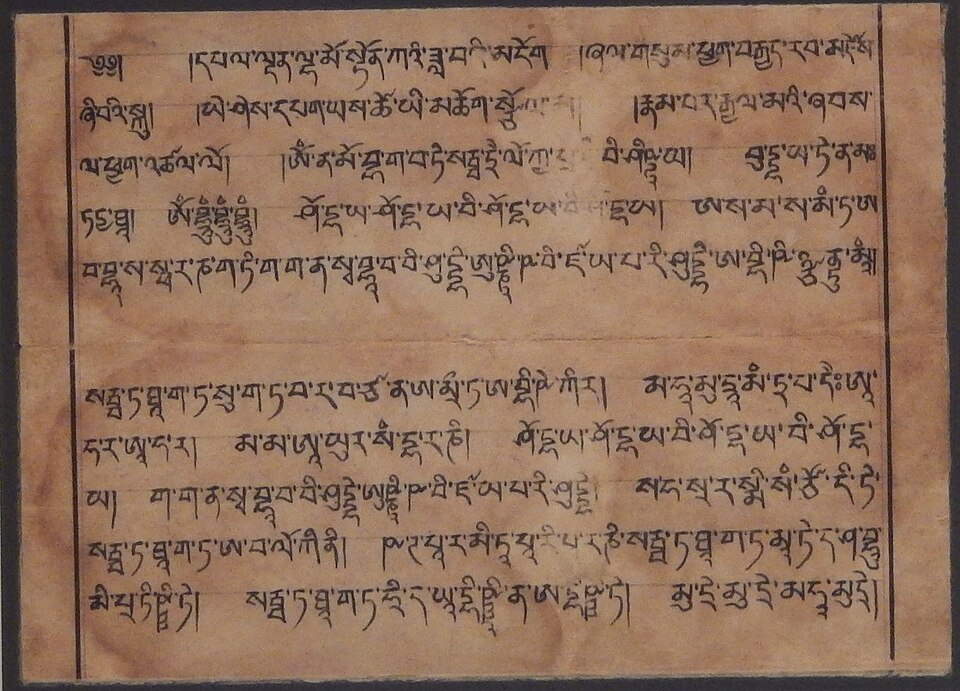 ༄༅། །དཔལ་ལྡན་ལྷ་མོ་སྟོན་ཀའི་ཟླ་བའི་མདོག །ཞལ་གསུམ་ཕྱག་བརྒྱད་རབ་མཛེས་
ཞི་བའི་སྐུ། །ཡེ་ཤེས་དཔག་ཡས་ཚེ་ཡི་མཆོག་སྩོལ་མ། །རྣམ་པར་རྒྱལ་མའི་ཞབས་
ལ་ཕྱག་འཚལ་ལོ། །ཨོཾ་ན་མོ་བྷ་ག་བ་ཏེ་སརྦ་ཏྲཻ་ལོ་ཀྱ་ བི་ཤིཥྚཱ་ཡ། བུདྡྷ་ཡ་ཏེ་ན་མཿ
ཏདྱ་ཐཱ། ཨོཾ་བྷྲཱུྃ་བྷྲཱུྃ་བྷྲཱུྃ། ཤོདྷ་ཡ་ཤོདྷ་ཡ་བི་ཤོདྷ་ཡ་བི་ཤོདྷ་ཡ། ཨ་ས་མ་ས་མནྟ་ཨ་
བ་བྷཱ་ས་སྥ་ར་ཎ་ག་ཏི་ག་ག་ན་སྭ་བྷཱ་བ་བི་ཤུདྡྷེ་ཨུཥྞཱི་ཥ་བི་ཛ་ཡ་པ་རི་ཤུདྡྷེ་ཨ་བྷི་ཥིཉྩནྟུ་མཱཾ།
སརྦ་ཏ་ཐཱ་ག་ཏ་སུ་ག་ཏ་བ་ར་བ་ཙ་ན་ཨ་མྲྀ་ཏ་ཨ་བྷི་ཥེ་ཀཻར། མ་ཧཱ་མུ་དྲཱ་མནྟྲ་པ་དཻཿ་ཨཱ་
ཧ་ར་ཨཱ་ཧ་ར། མ་མ་ཨཱ་ཡུར་སནྡྷ་ར་ཎི། ཤོདྷ་ཡ་ཤོདྷ་ཡ་བི་ཤོདྷ་ཡ་བི་ཤོདྷ་
ཡ། ག་ག་ན་སྭ་བྷཱ་བ་བི་ཤུདྡྷེ་ཨུཥྞཱི་ཥ་བི་ཛ་ཡ་པ་རི་ཤུདྡྷེ། ས་ཧ་སྲ་ར་སྨི་སཉྩོ་དི་ཏེ་
སརྦ་ཏ་ཐཱ་ག་ཏ་ཨ་བ་ལོ་ཀི་ནི། །ཥཊ་པཱ་ར་མི་ཏཱ་པ་རི་པཱུ་ར་ཎི་སརྦ་ཏ་ཐཱ་ག་ཏ་མཱ་ཏེ་ད་ཤ་བྷཱུ་
མི་པྲ་ཏིཥྛི་ཏེ། སརྦ་ཏ་ཐཱ་ག་ཏ་ཧྲི་ད་ཡཱ་དྷིཥྛཱ་ན་ཨ་དྷིཥྛི་ཏེ། མུ་དྲེ་མུ་དྲེ་མ་ཧཱ་མུ་དྲེ།